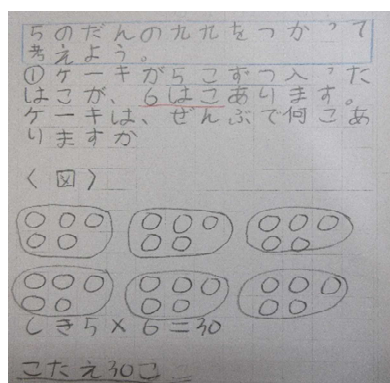 5のだんの九九をつかって
考えよう。
①ケーキが5こずつ入った
はこが、6はこあります。
ケーキは、ぜんぶで何こあ
りますか
〈図〉
しき5×6=30
こたえ30こ